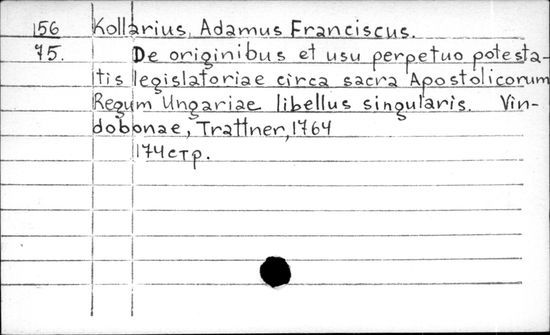 156 Kollarius, Adamus Franciscus.
75. De originibus et usu perpetuo potesta-
tis legislatoriae circa sacra Apostolicorum
Regum Ungariae libellus singularis. Vin-
dobonae, Trattner, 1764
174 стр.